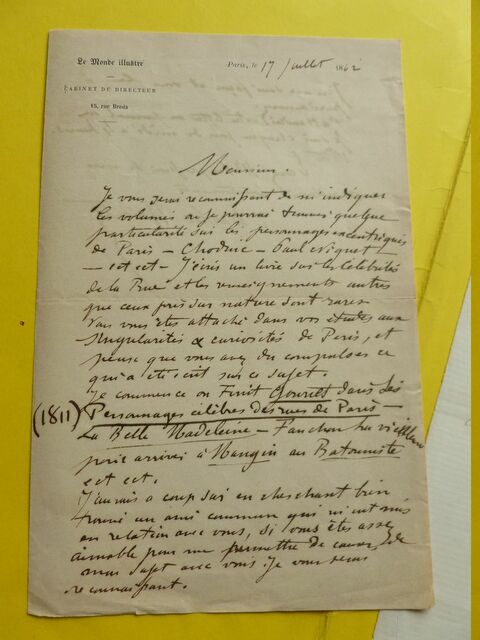 Le Monde illustré
Paris, le 17 Juillet 1862
CABINET DU DIRECTEUR
15, rue Breda
Monsieur.
Je vous serai reconnaissant de m'indiquer
les volumes ou je pourrai trouver quelque
particularité sur les personnages excentriques
de Paris - Chodruc - Paul Niquet
- ect ect - J'écris un livre sur les Célébrités
de la Rue et les renseignements autres
que ceux pris sur nature sont rares
vous vous êtes attaché dans vos études aux
singularités & curiosités de Paris, et
pense que vous avez du compulser ce
qui a été écrit sur ce sujet.
Je commence ou Finit Gouriet dans ses
(1811) Personnages célèbres des rues de Paris -
La Belle Madeleine - Fanchon la vielleuse
pour arriver à Mangin au Batonniste
ect ect.
J'aurais a coup sur en cherchant bien
trouvé un ami commun qui m'eut mis
en relation avec vous, si vous êtes assez
aimable pour me permettre de causer de
mon sujet avec vous je vous serai
reconnaissant.